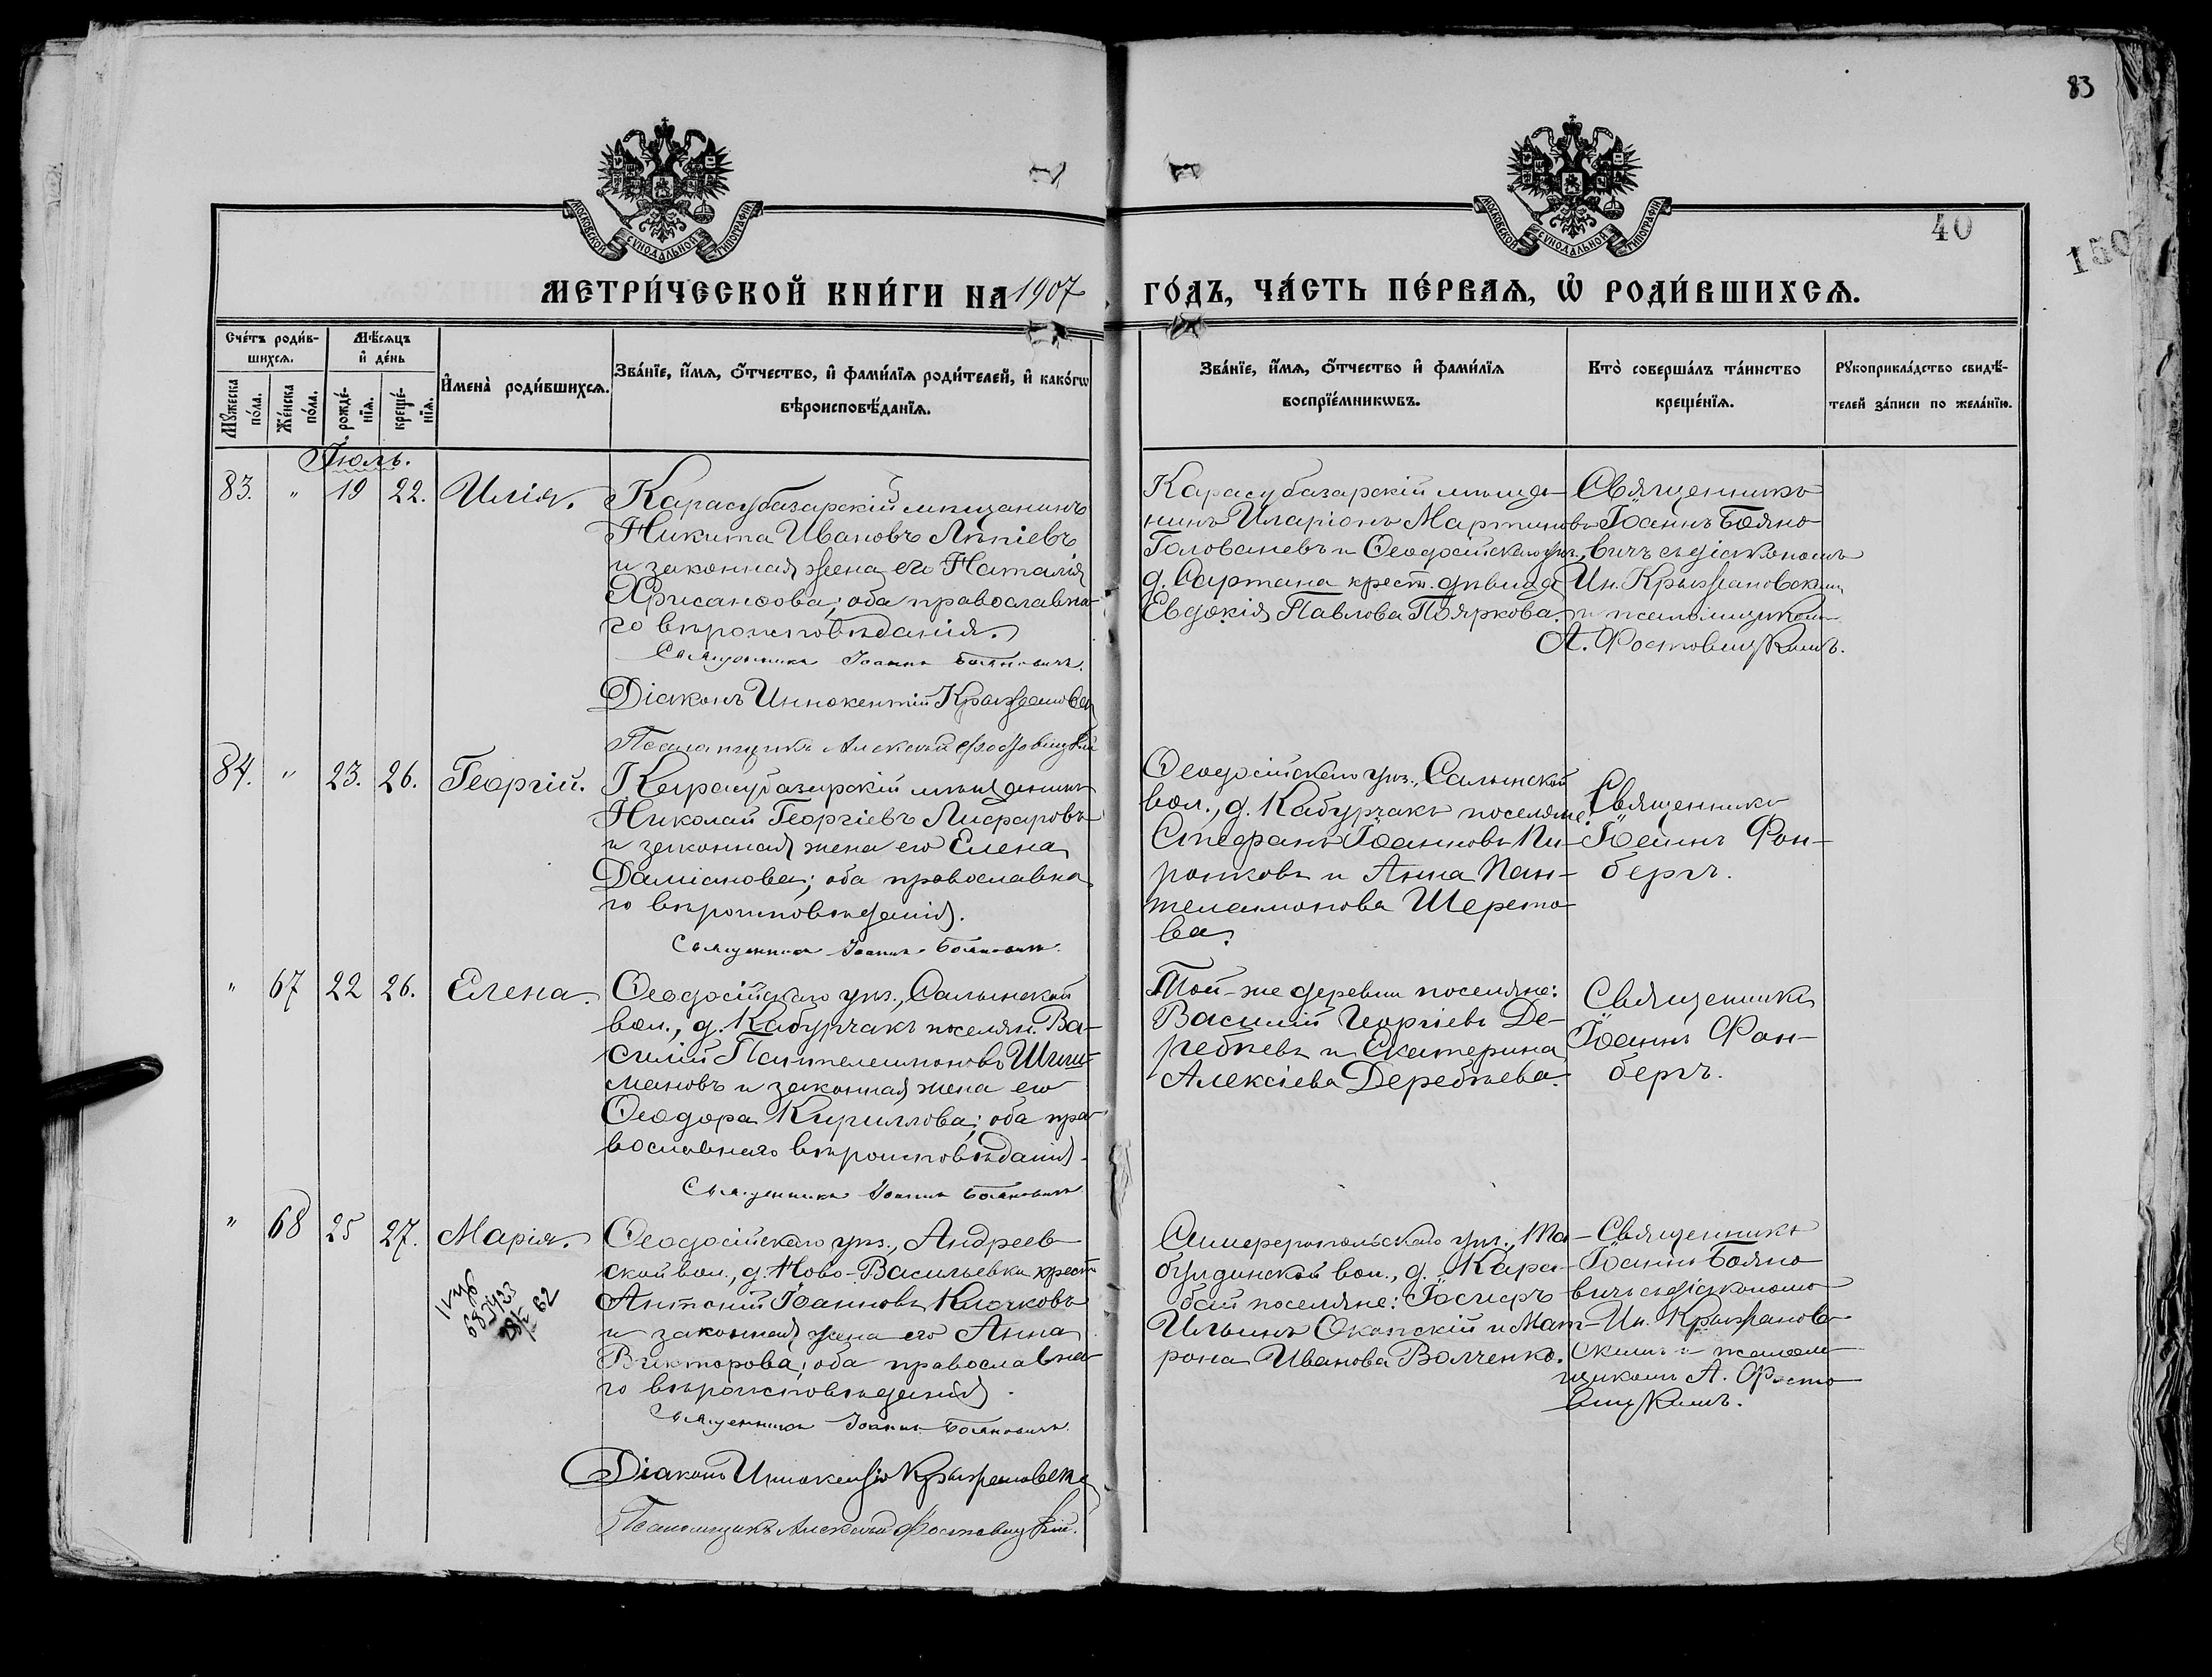 83
40
150
МОСКОВСКОЙ СѴНОДАЛЬНОЙ ТИПОГРАФІИ
МОСКОВСКОЙ СѴНОДАЛЬНОЙ ТИПОГРАФІИ
МЕТРИ́ЧЕСКОЙ КНИ́ГИ НА 1907
ГО́ДЪ, ЧА́СТЬ ПЕ́РВАѦ, Ѡ҆ РОДИ́ВШИХСѦ.
Сче́тъ роди́в-
шихсѧ.
Мꙋ́жеска по́ла.
Же́нска по́ла.
Мѣ́сѧцъ
и҆ де́нь
рожде́-нїѧ.
креще́-нїѧ.
И҆мена̀ роди́вшихсѧ.
Зва́нїе, и҆́мѧ, ѻ҆́тчество, и҆ фами́лїѧ роди́телей, и҆ како́гѡ
вѣроисповѣ́данїѧ.
Зва́нїе, и҆́мѧ, ѻ҆́тчество и҆ фами́лїѧ
воспрїе́мникѡвъ.
Кто̀ соверша́лъ та́инство
креще́нїѧ.
Рꙋкоприкла́дство свидѣ́-
телей за́писи по жела́нїю.
Іюль.
83. " 19 22. Илія.
Карасубазарскій мѣщанинъ
Никита Ивановъ Лапіевъ
и законная жена его Наталія
Хрисанѳова; оба православна-
го вѣроисповѣданія.
Священникъ Іоаннъ Бояновичъ.
Діаконъ Иннокентій Крыжановск
Псаломщикъ Алексѣй Фостовицкій
Карасубазарскій мѣща-
нинъ Иларіонъ Мартиновъ
Голованевъ и Ѳеодосійскаго уѣз.,
д. Сартана крест. дѣвица
Евдокія Павлова Пояркова.
Священникъ
Іоаннъ Бояно-
вичъ съ діакономъ
Ин. Крыжановским
и псаломщиком
А. Фостовицкимъ.
84. " 23. 26. Георгій.
Карасубазарскій мѣщанинъ
Николай Георгіевъ Лисфаровъ
и законная жена его Елена
Даміанова; оба православна
го вѣроисповѣданія.
Священникъ Іоаннъ Бояновичъ.
Ѳеодосійскаго уѣз., Салынской
вол., д. Кабурчакъ поселяне:
Стефанъ Іоанновъ Пи-
ронковъ и Анна Пан-
телеимонова Шерето-
ва.
Священникъ
Іоаннъ Фон-
бергъ.
" 67 22 26. Елена.
Ѳеодосійскаго уѣз., Салынской
вол., д. Кабурчакъ поселян. Ва-
силій Пантелеимоновъ Шиш-
мановъ и законная жена его
Ѳеодора Кириллова; оба пра-
вославнаго вѣроисповѣданія.
Священникъ Іоаннъ Бояновичъ
Той-же деревни поселяне:
Василій Георгіевъ Де-
ребѣевъ и Екатерина
Алексіева Деребѣева.
Священникъ
Іоаннъ Фон-
бергъ.
" 68 25 27. Марія.
Ѳеодосійскаго уѣз., Андреев-
ской вол., д. Ново-Васильевки крест
Антоній Іоанновъ Клочковъ
и законная жена его Анна
Викторова; оба православна-
го вѣроисповѣданія.
Священникъ Іоаннъ Бояновичъ.
Діаконъ Иннокентій Крыжановск
Псаломщикъ Алексѣй Фостовицкій.
Симферопольскаго уѣз., Та-
булдинской вол., д. Кара-
бай поселяне: Іосифъ
Ильинъ Оконскій и Мат-
рона Иванова Волченко.
Священникъ
Іоаннъ Бояно
вичъ съ діакономъ
Ин. Крыжанов-
скимъ и псалом-
щикомъ А. Фосто-
вицкимъ.